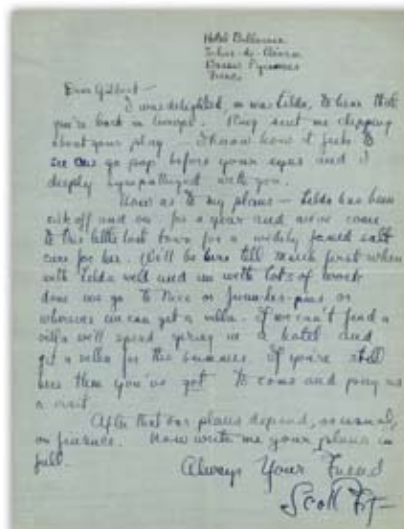 Hotel Bellevue
Salies-de-Béarn
Basses Pyrenees
France
Dear Gilbert—
I was delighted, as was Zelda, to hear that
you're back in Europe. Ring sent me clipping
about your play. I know how it feels to
see one go pop before your eyes and I
deeply sympathized with you.
Now as to my plans — Zelda has been
sick off and on for a year and we've come
to this little lost town for a widely famed salt
cure for her. We'll be here till March first when
with Zelda well and me with lots of work
done we go to Nice or Juan-les-pins or
wherever we can get a villa. If we can't find a
villa we'll spend spring in a hotel and
get a villa for the summer. If you're still
here then you've got to come and pay us
a visit.
After that our plans depend, as usual,
on finance. Now write me your plans in
full.
Always Your Friend
Scott Fitz—